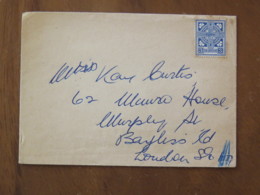 Miss Kay Curtis,
62 Munro House,
Murphy St
Bayliss Rd
London SE